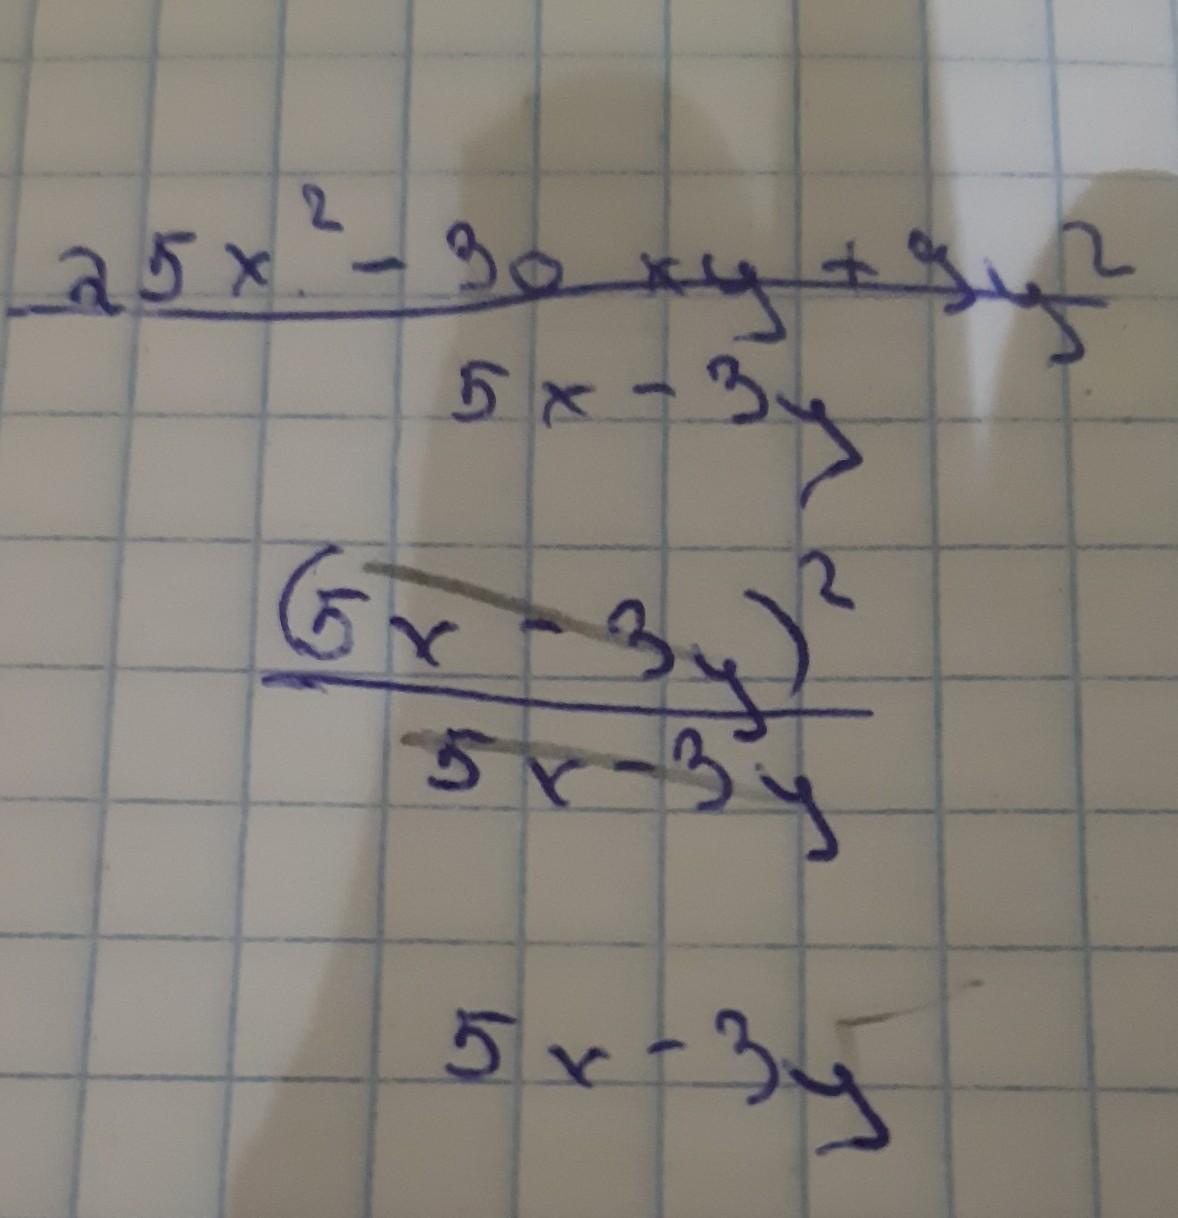 25x² - 30xy + 9y²
5x - 3y
(5x - 3y)²
5x - 3y
5x - 3y